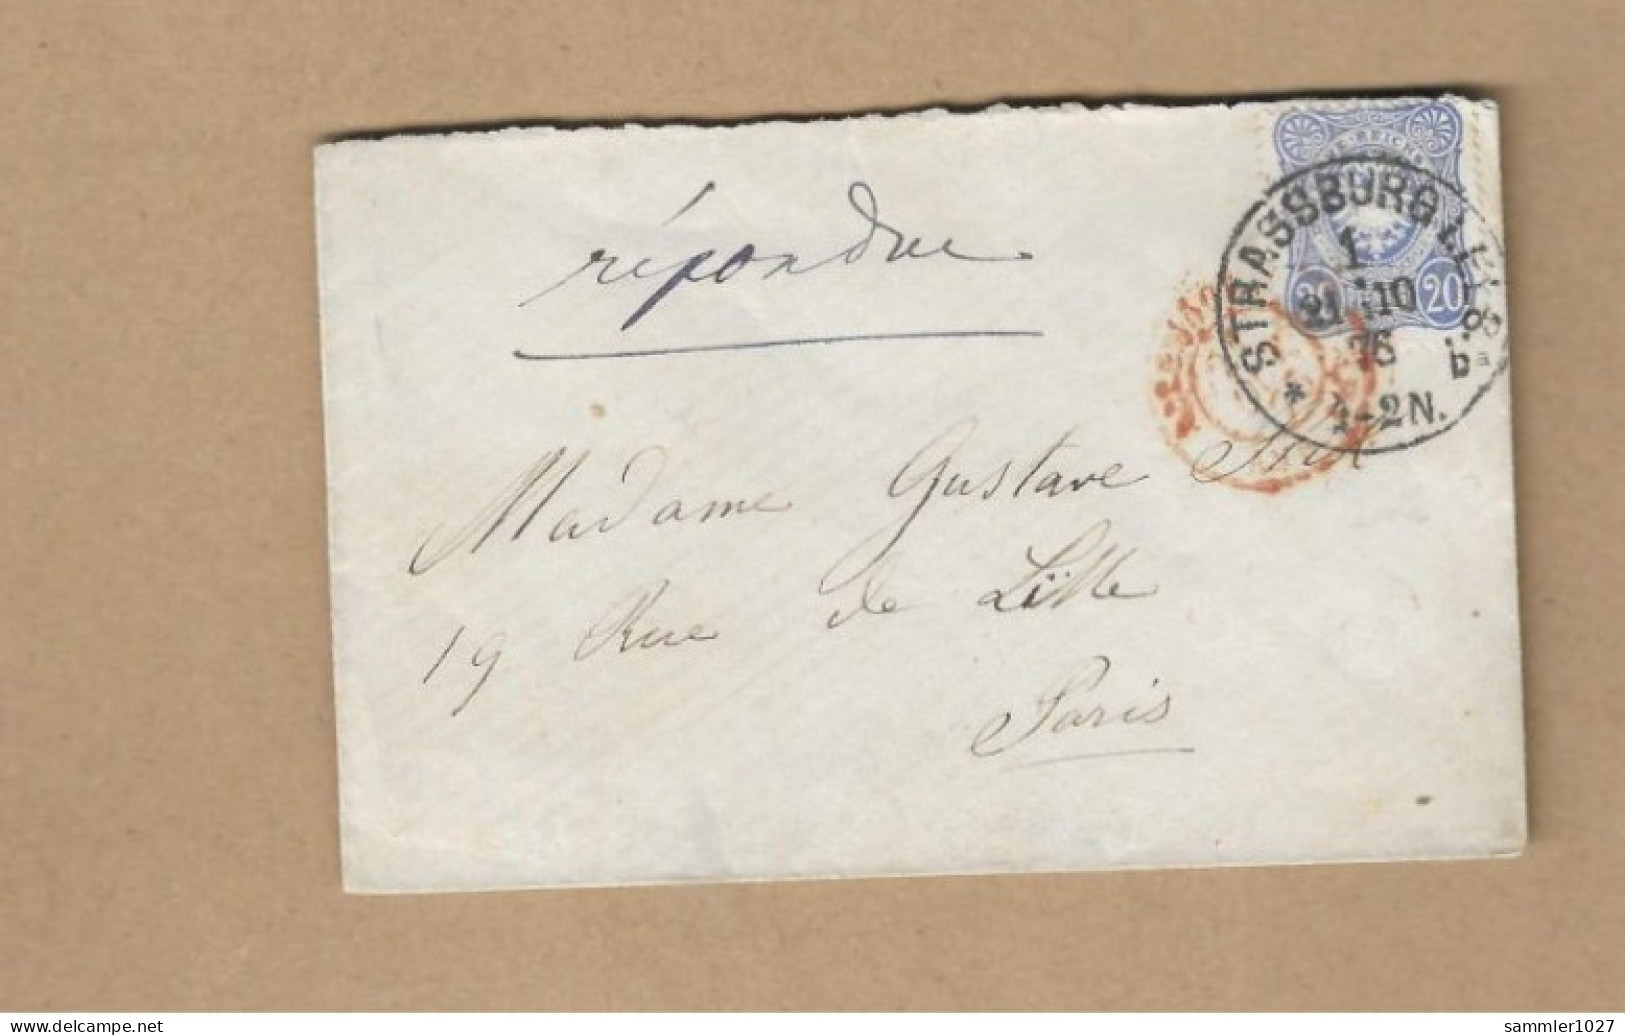 répondue
REICHS
20 20
STRASSBURG I. ELS.
1
21 10
76
ba
* 1-2N.
Madame Gustave
19 Rue de Lille
Paris
delcampe.net
sammler1027